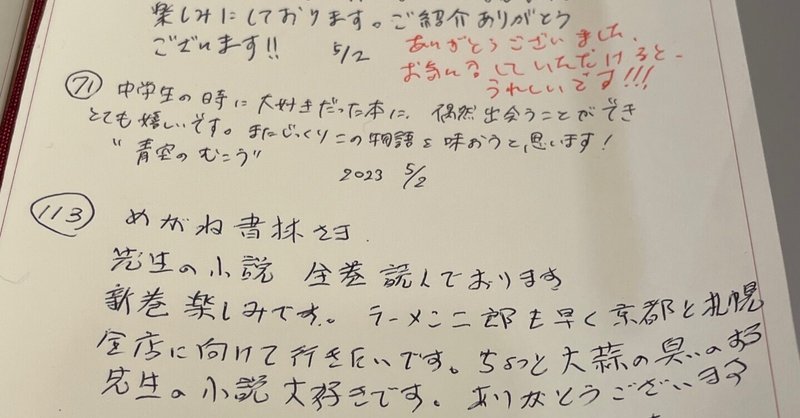 楽しみにしております。ご紹介ありがとう
ございます!! 5/2
ありがとうございました。
お気に召していただけると、
うれしいです!!!
71 中学生の時に大好きだった本に、偶然出会うことができ
とても嬉しいです。またじっくりこの物語を味おうと思います!
"青空のむこう"
2023 5/2
113 めがね書林さま
先生の小説 全巻 読んでおります
新巻 楽しみです。ラーメン二郎も早く京都と札幌
全店に向けて行きたいです。ちょっと大蒜の臭いのする
先生の小説大好きです。ありがとうございます